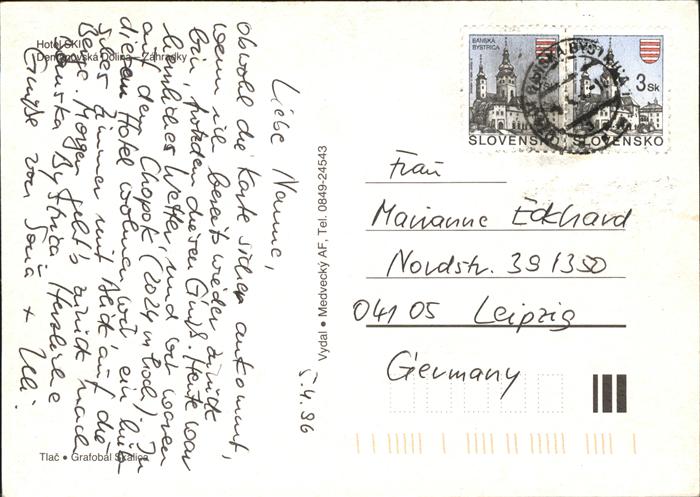 Hotel SKI
Demänovská Dolina - Záhradky
5.4.96
Liebe Nanne,
obwohl die Karte sicher ankommt,
wenn ich bereits wieder zurück
bin, trotzdem diesen Gruß. Heute war
herrliches Wetter, und wir waren
auf dem Chopok (2024 m hoch). In
diesem Hotel wohnen wir, ein
Zimmer mit Blick auf die
Berge. Morgen geht's zurück nach
Banska Bystrica. Herzliche
Grüße von Sonja + Ulli
Tlač • Grafobal Skalica
Vydal • Medvecký AF, Tel. 0849-24543
BANSKÁ
BYSTRICA
SLOVENSKO
3 Sk
SLOVENSKO
BANSKÁ BYSTRICA 1
Frau
Marianne Eckhard
Nordstr. 39 1350
04105 Leipzig
Germany